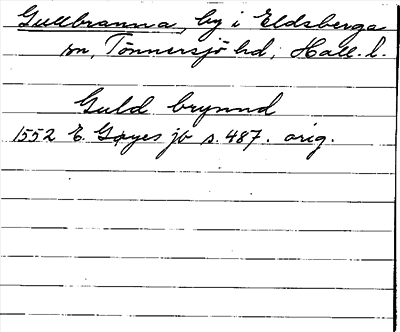 Gullbranna, by i Eldsberga
sn, Tönnersjö hd, Hall. l.
Guld brynnd
1552 E. Gøyes jb s. 487. orig.